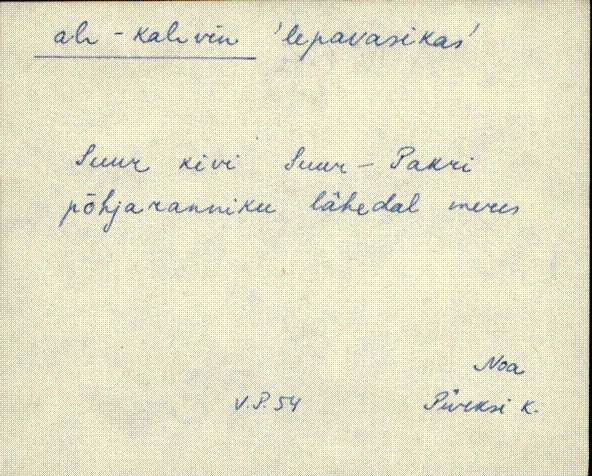 alr-kalvin 'lepavasikas'
Suur kivi Suur-Pakri
põhjaranniku lähedal meres
Noa
V.P. 54 Pürksi k.